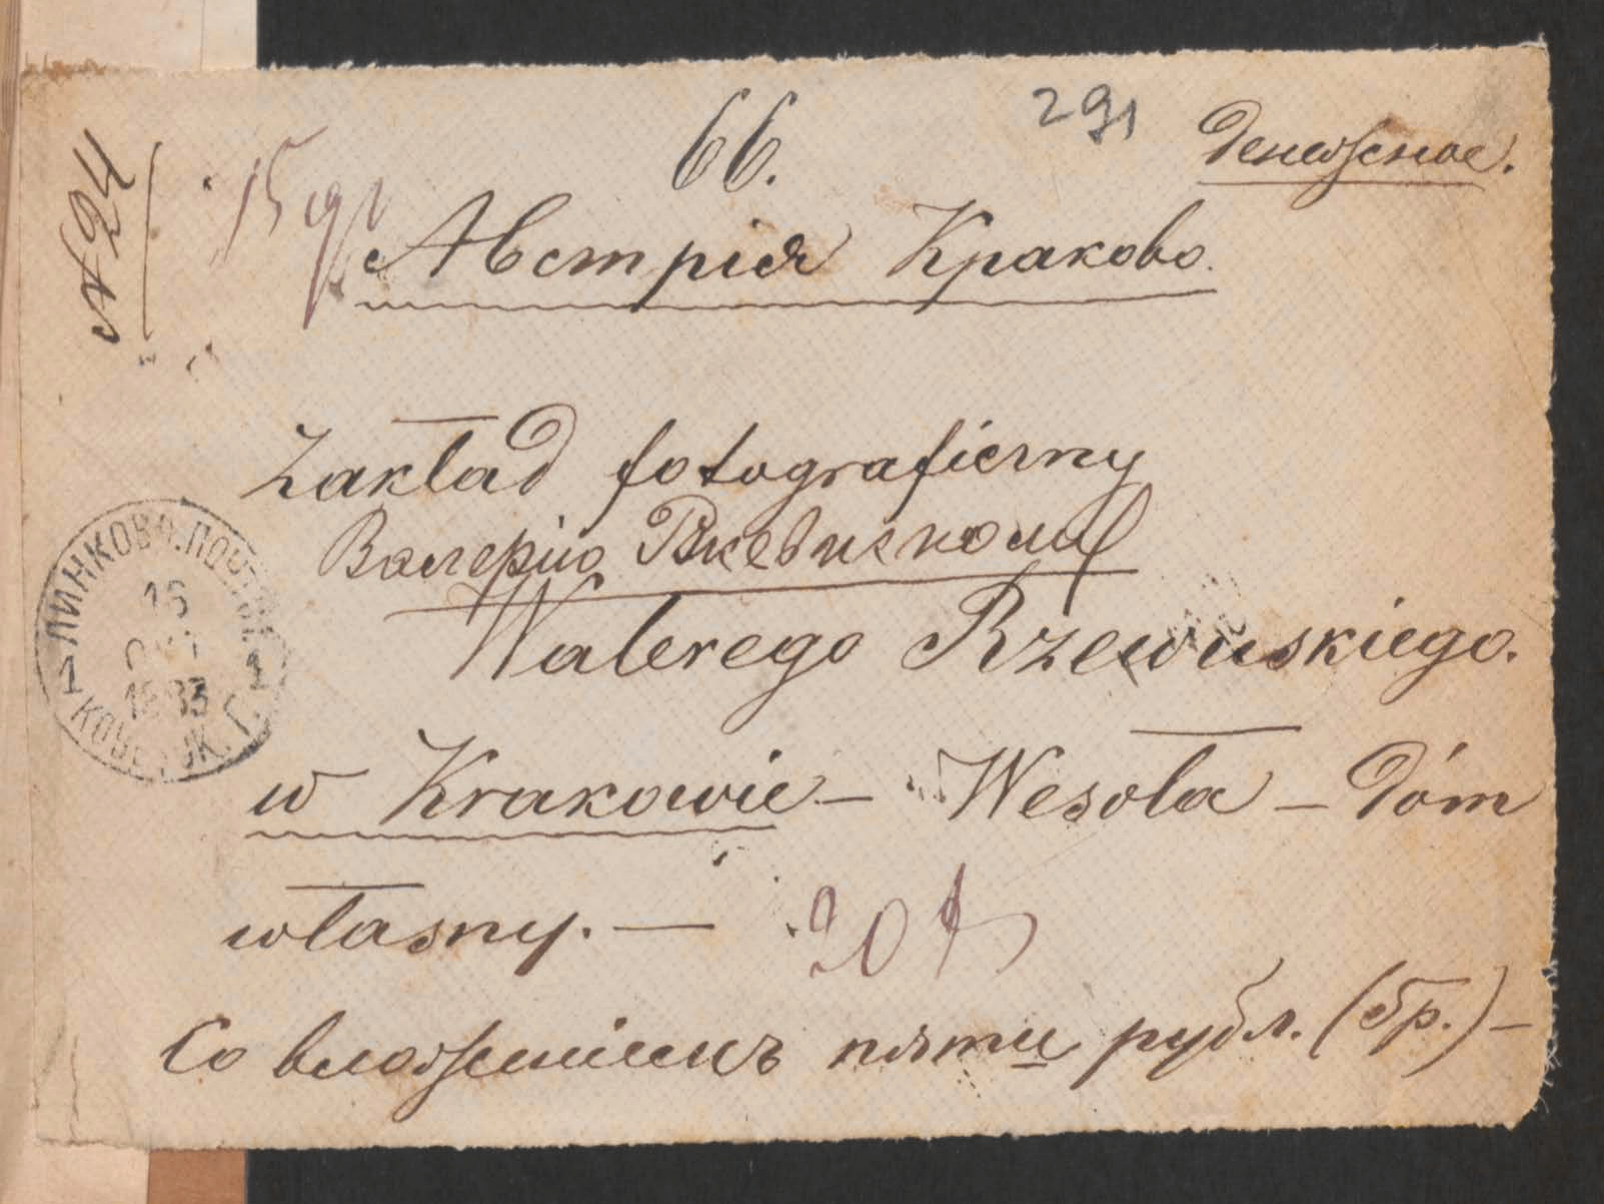 66.
291
Денежное.
Австрія Краково.
Zakład fotograficzny
Валерію Ржевускому
Walerego Rzewuskiego.
w Krakowie — Wesoła — Dóm
własny. —
Со вложеніемъ пяти рубл. (5р.) —
ЛИНКОВО. ПОЧТ.
16
1883
1 1